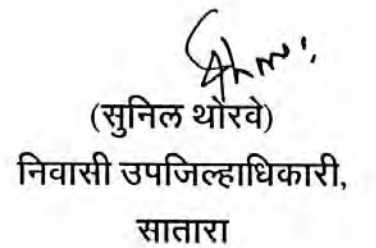 (सुनिल थोरवे)
निवासी उपजिल्हाधिकारी,
सातारा